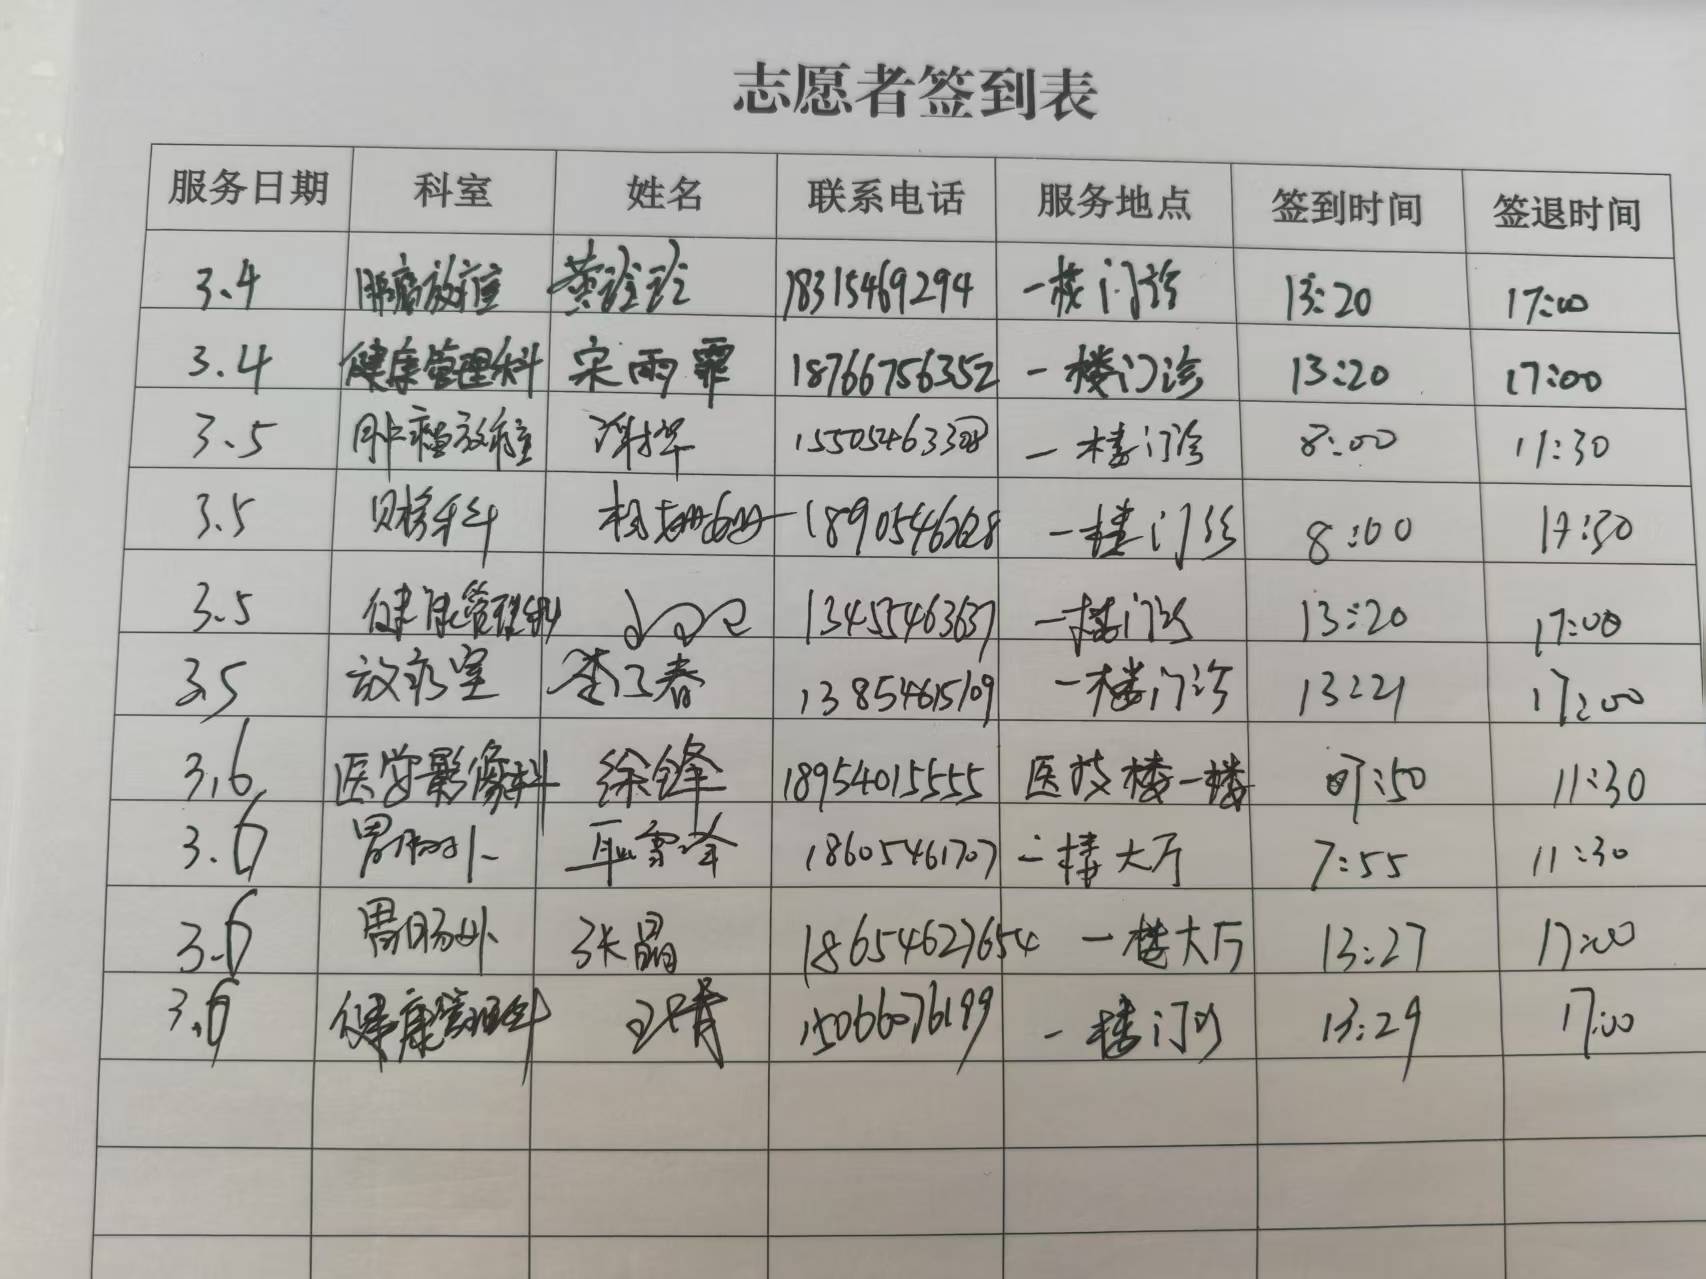 志愿者签到表
服务日期 科室 姓名 联系电话 服务地点 签到时间 签退时间
3.4 肿瘤放疗 黄 18315469294 一楼门诊 13:20 17:00
3.4 健康管理科 宋雨霏 18766756352 一楼门诊 13:20 17:00
3.5 肿瘤放疗 15505463308 一楼门诊 8:00 11:30
3.5 财务科 一楼门诊 8:00
3.5 健康管理科 一楼门诊 13:20 17:00
3.5 放疗室 李 春 13854615109 一楼门诊 13:21 17:00
3.6 医学影像科 徐锋 18954015555 医技楼一楼 11:30
3.6 胃肠外 耿 18605461707 一楼大厅 7:55 11:30
3.6 胃肠外 张晶 18654627654 一楼大厅 13:27 17:00
3.6 健康管理科 15066076199 一楼门诊 13:29 17:00